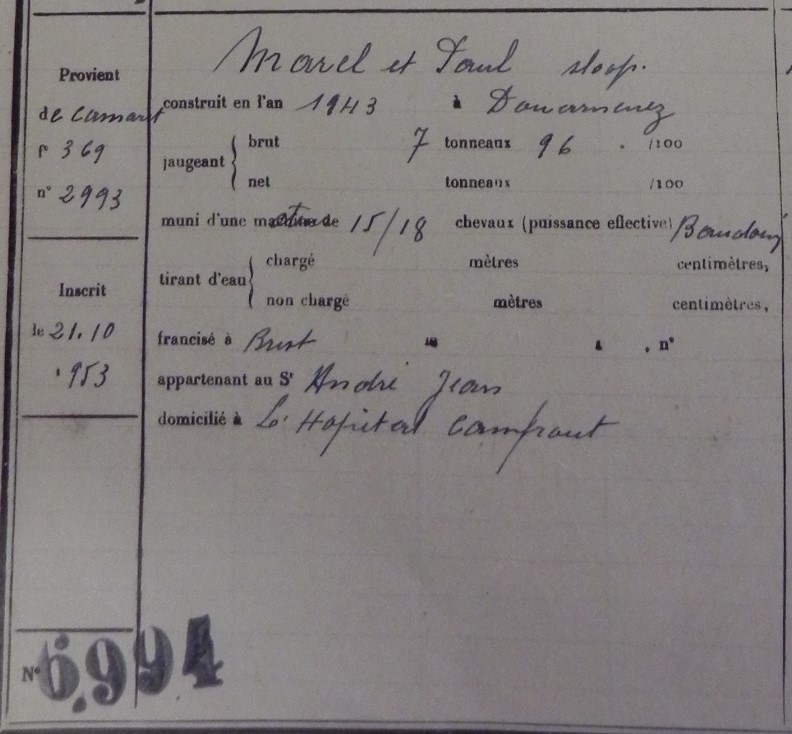 Provient
de Camaret
f° 369
n° 2993
Inscrit
le 21.10
1953
N° 6.994
Marcel et Paul sloop.
construit en l'an 1943 à Douarnenez
jaugeant brut 7 tonneaux 96 . /100
net tonneaux /100
muni d'une de 15/18 chevaux (puissance effective) Baudouin
tirant d'eau chargé mètres centimètres,
non chargé mètres centimètres,
francisé à Brest le à , n°
appartenant au Sr André Jean
domicilié à L'Hopital Camfrout